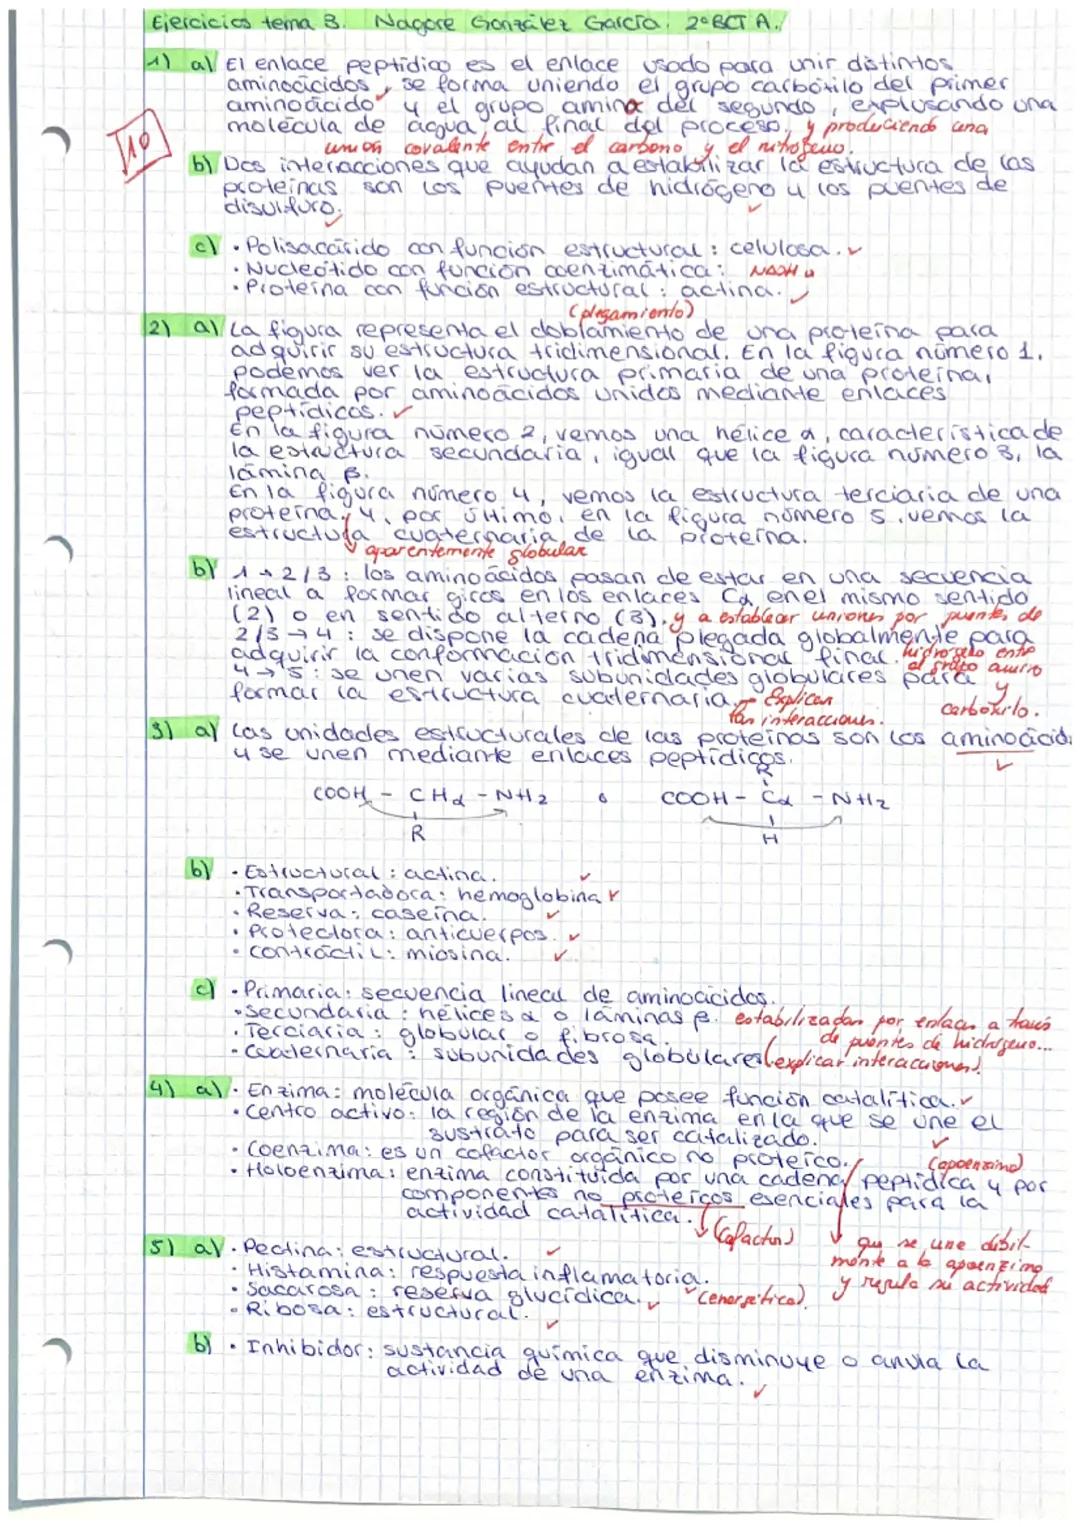 Ejercicios tema 3. Nagore González García. 2ºBCT A.
1) a) El enlace peptídico es el enlace usado para unir distintos
aminoácidos, se forma uniendo el grupo carboxilo del primer
aminoácido y el grupo amino del segundo, explusando una
molécula de agua al final del proceso, y produciendo una
unión covalente entre el carbono y el nitrógeno.
10
b) Dos interacciones que ayudan a estabilizar la estructura de las
proteínas son los puentes de hidrógeno y los puentes de
disulfuro.
c) · Polisacárido con función estructural: celulosa.
· Nucleótido con función coenzimática: NADH
· Proteína con función estructural: actina.
(plegamiento)
2) a) La figura representa el doblamiento de una proteína para
adquirir su estructura tridimensional. En la figura número 1,
podemos ver la estructura primaria de una proteína,
formada por aminoácidos unidos mediante enlaces
peptídicos.
En la figura número 2, vemos una hélice α, característica de
la estructura secundaria, igual que la figura número 3, la
lámina β.
En la figura número 4, vemos la estructura terciaria de una
proteína, y, por último, en la figura número 5, vemos la
estructura cuaternaria de la proteína.
aparentemente globular
b) 1→2/3: los aminoácidos pasan de estar en una secuencia
lineal a formar giros en los enlaces Cα en el mismo sentido
(2) o en sentido alterno (3). y a establecer uniones por puentes de
2/3→4: se dispone la cadena plegada globalmente para hidrógeno entre
adquirir la conformación tridimensional final. el grupo amino
4→5: se unen varias subunidades globulares para y
formar la estructura cuaternaria. Explicar carboxilo.
las interacciones.
3) a) Las unidades estructurales de las proteínas son los aminoácidos
y se unen mediante enlaces peptídicos.
R
COOH - CHα - NH2 o COOH - Cα - NH2
R H
b) · Estructural: actina.
· Transportadora: hemoglobina
· Reserva: caseína.
· Protectora: anticuerpos.
· Contráctil: miosina.
c) · Primaria: secuencia lineal de aminoácidos.
· Secundaria: hélices α o láminas β. estabilizadas por enlaces a través
· Terciaria: globular o fibrosa. de puentes de hidrógeno...
· Cuaternaria: subunidades globulares (explicar interacciones).
4) a) · Enzima: molécula orgánica que posee función catalítica.
· Centro activo: la región de la enzima en la que se une el
sustrato para ser catalizado.
· Coenzima: es un cofactor orgánico no proteico. (apoenzima)
· Holoenzima: enzima constituida por una cadena peptídica y por
componentes no proteicos esenciales para la
actividad catalítica. (cofactor) que se une débil-
5) a) · Pectina: estructural. mente a la apoenzima
· Histamina: respuesta inflamatoria. y regula su actividad
· Sacarosa: reserva glucídica. (energética).
· Ribosa: estructural.
b) · Inhibidor: sustancia química que disminuye o anula la
actividad de una enzima.